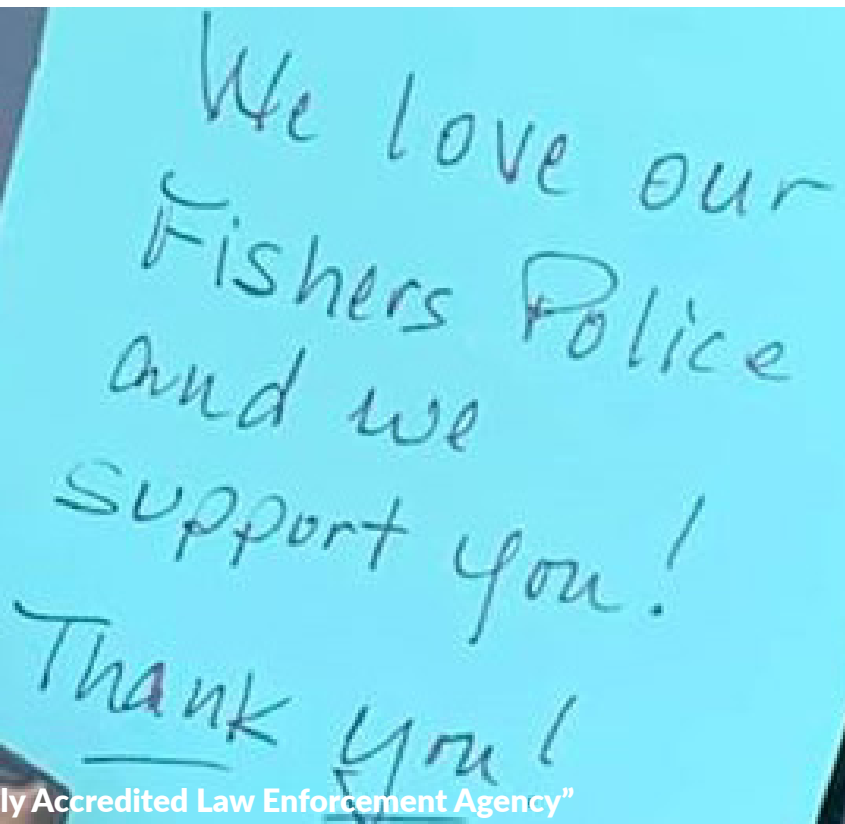 We love our
Fishers Police
and we
support you!
Thank you!
ly Accredited Law Enforcement Agency”